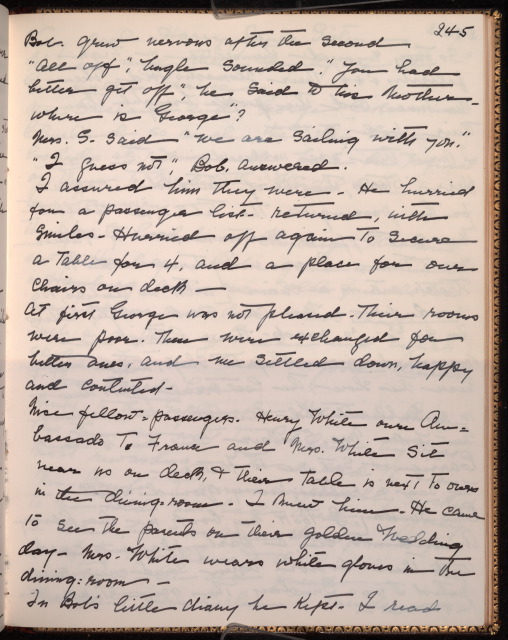 245
Bob. grew nervous after the second
"All off", bugle sounded. "You had
better get off", he said to his Mother -
where is George"?
Mrs. S. said "we are sailing with you."
"I guess not" Bob. answered.
I assured him they were - He hurried
for a passenger list - returned, with
smiles - Hurried off again to secure
a table for 4, and a place for our
chairs on deck —
At first George was not pleased - Their rooms
were poor. These were exchanged for
better ones, and we settled down, happy
and contented -
Nice fellow-passengers. Henry White our Am=
bassado to France and Mrs. White sit
near us on deck, & their table is next to ours
in the dining-room - I knew him - He came
to see the parents on their golden Wedding
day - Mrs. White wears white gloves in the
dining-room -
In Bob's little diary he kept - I read